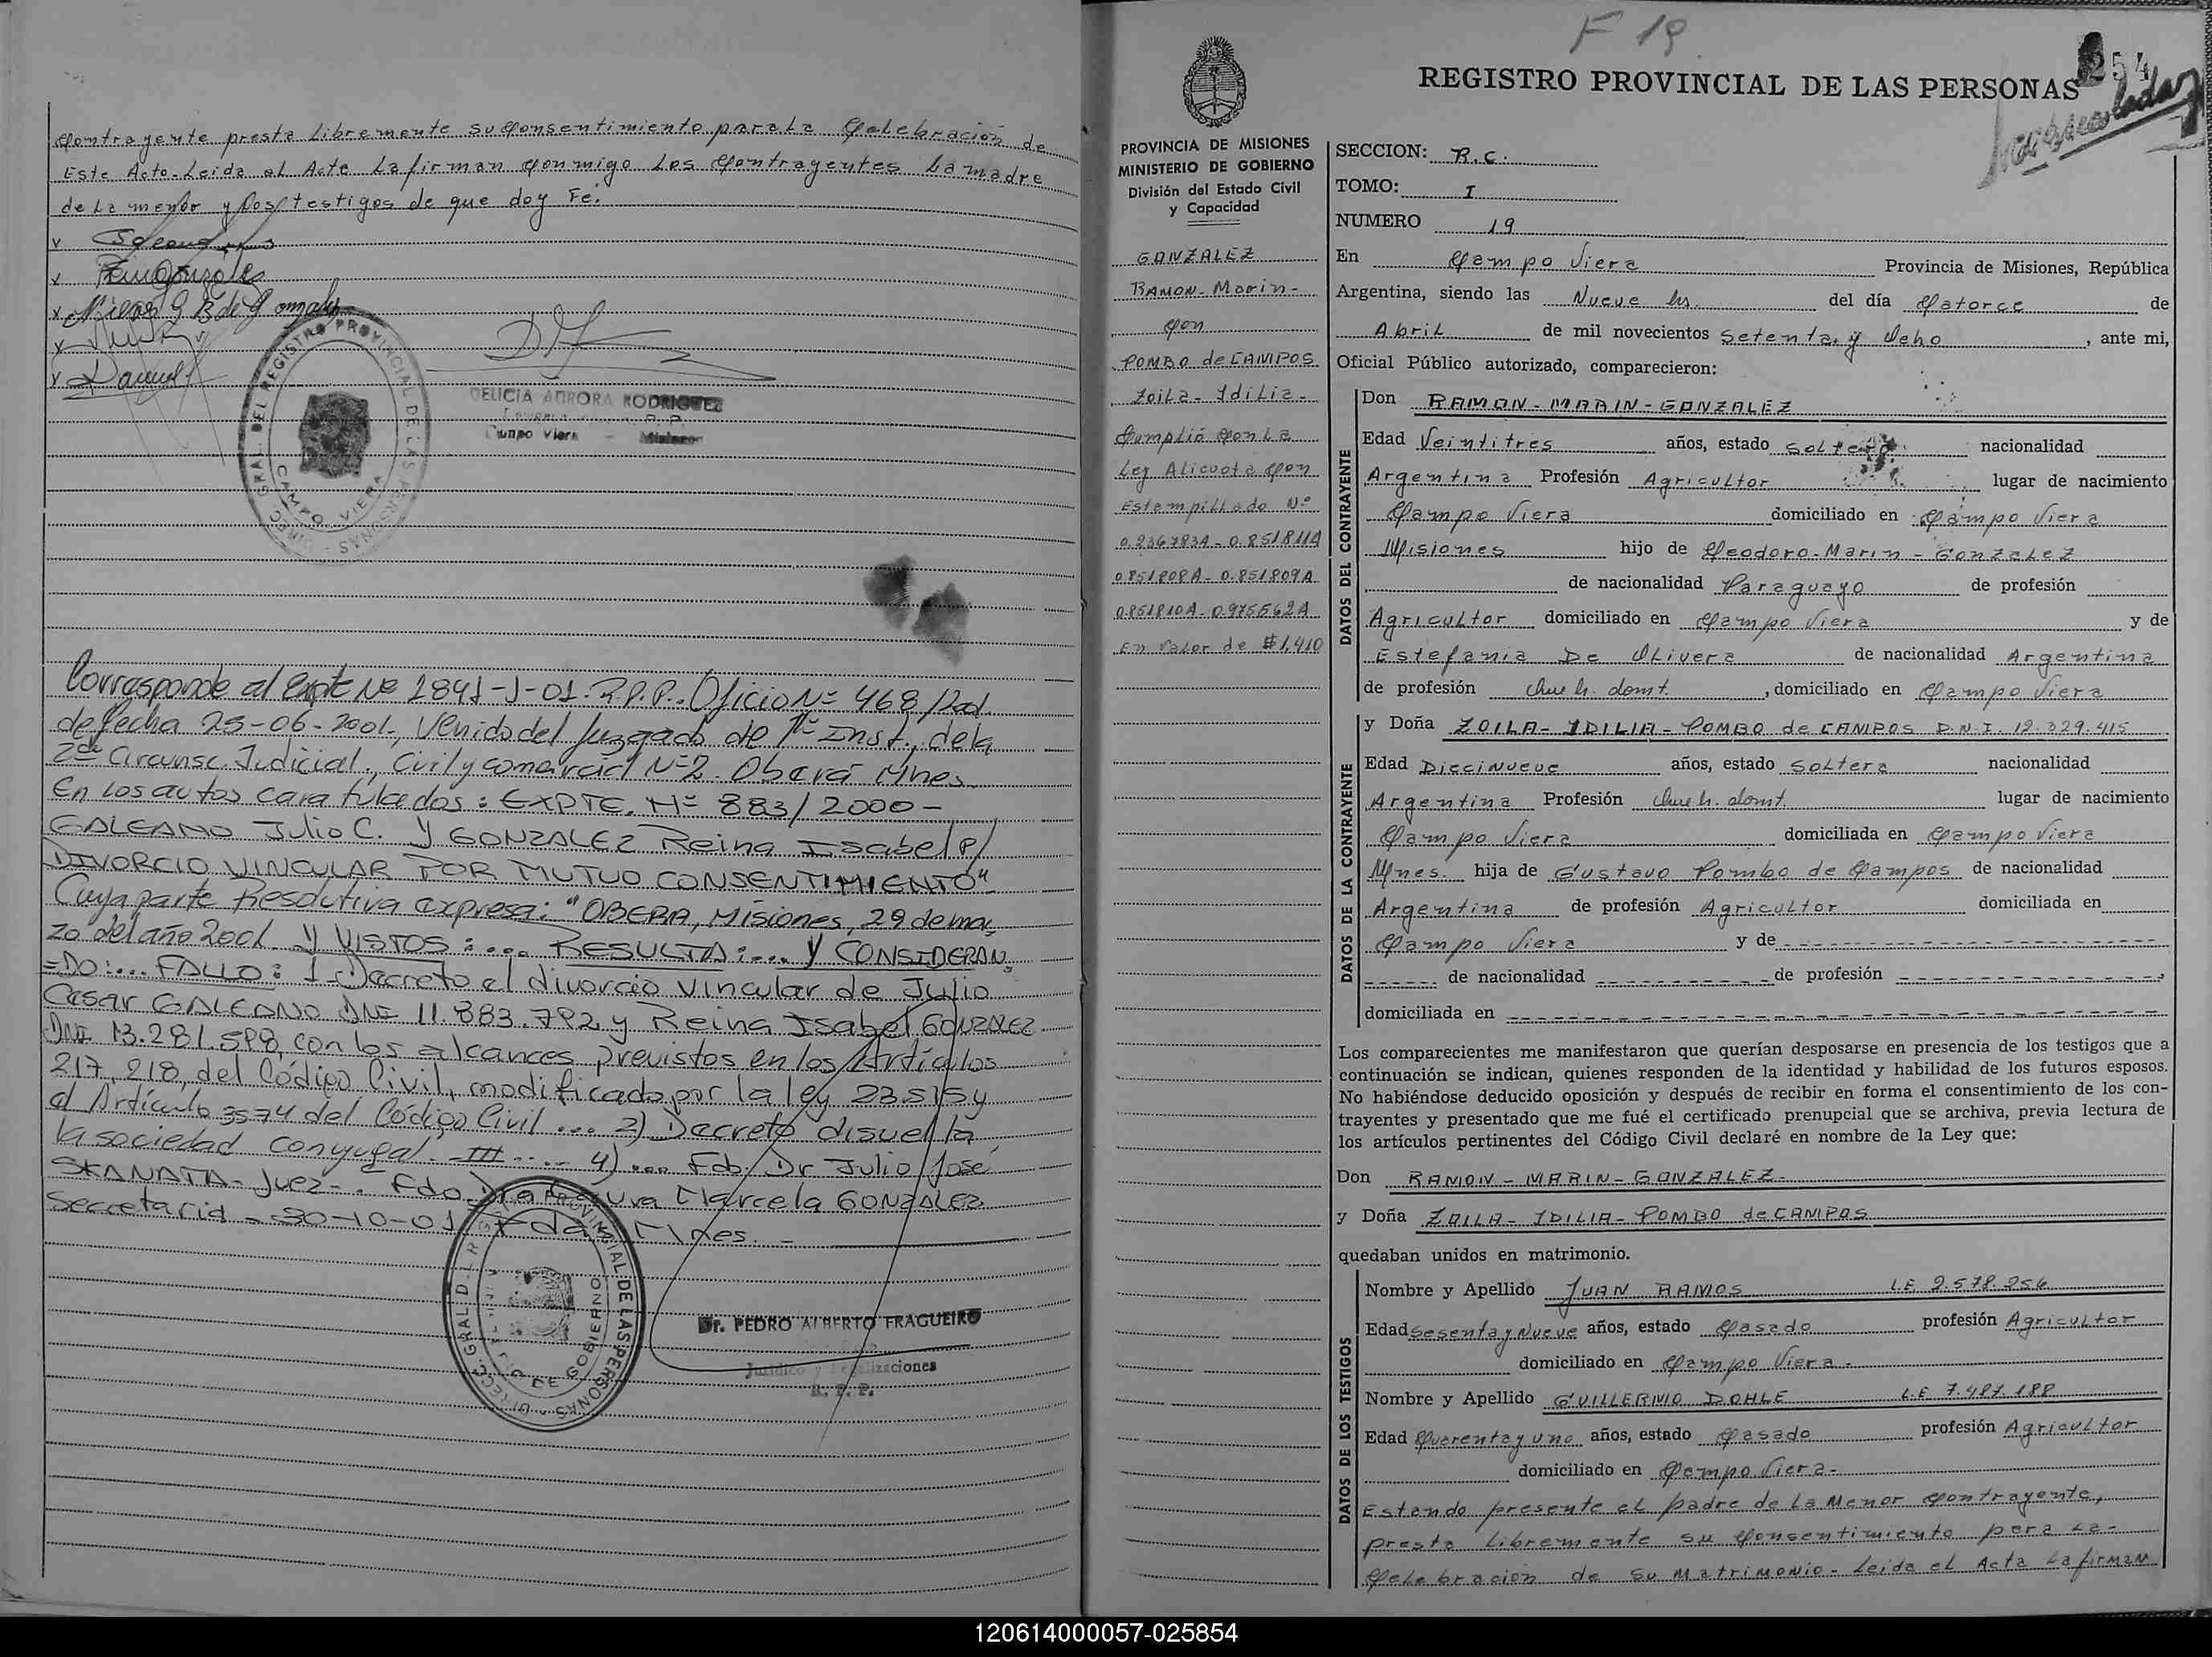 Contrayente presta Libremente su Consentimiento para La Celebración de
Este Acto-Leida el Acta La firman Conmigo Los Contrayentes La madre
de La menor y Los testigos de que doy Fé.
DELICIA AURORA RODRIGUEZ
Campo Viera - Misiones
DIREC. GRAL. DEL REGISTRO PROVINCIAL DE LAS PERSONAS
CAMPO VIERA
Corresponde al Expte Nº 2841-J-01. R.P.P. Oficio Nº 468/
de fecha 25-06-2001., Venido del Juzgado de 1ra Inst., de la
2da Circunsc. Judicial., Civil y comercial Nº 2. Oberá Mnes.
En los autos caratulados: EXPTE. Nº 883/2000-
GALEANO Julio C. y GONZALEZ Reina Isabel p/
DIVORCIO VINCULAR POR MUTUO CONSENTIMIENTO"
Cuya parte Resolutiva expresa: "OBERA, Misiones, 29 de mar,
zo del año 2001. Y VISTOS:... RESULTA:... Y CONSIDERAN,
=DO:... FALLO: 1-Decreto el divorcio vincular de Julio
Cesar GALEANO DNI 11.883.792 y Reina Isabel GONZALEZ
DNI 13.281.598, con los alcances previstos en los Artículos
217, 218, del Código Civil, modificado por la ley 23.515 y
el Artículo 3574 del Código Civil ... 2) Decreto disuelta
la sociedad conyugal. III .... 4)... Fdo. Dr Julio José
SKANATA-Juez-. Fdo. Dra Marcela GONZALEZ
Secretaria - 30-10-01 Pdas Mnes. -
Dr. PEDRO ALBERTO FRAGUEIRO
Jurídico y Legalizaciones
R. P. P.
F 19
254
REGISTRO PROVINCIAL DE LAS PERSONAS
PROVINCIA DE MISIONES
MINISTERIO DE GOBIERNO
División del Estado Civil
y Capacidad
GONZALEZ
RAMON-Marin-
Con
POMBO de CAMPOS
Zoila-Idilia-
Cumplió Con La
Ley Alicuota Con
Estampillado Nº
0.236783A-0.851811A
0.851808A-0.851809A
0.851810A-0.975562A
En Valor de $1.410
SECCION: R.C.
TOMO: I
NUMERO 19
En Campo Viera Provincia de Misiones, República
Argentina, siendo las Nueve hs. del día Catorce de
Abril de mil novecientos Setenta y Ocho, ante mi,
Oficial Público autorizado, comparecieron:
DATOS DEL CONTRAYENTE
Don RAMON-MARIN-GONZALEZ
Edad Veintitres años, estado Soltero nacionalidad
Argentina Profesión Agricultor lugar de nacimiento
Campo Viera domiciliado en Campo Viera
Misiones hijo de Teodoro-Marin-Gonzalez
de nacionalidad Paraguayo de profesión
Agricultor domiciliado en Campo Viera y de
Estefania De Olivera de nacionalidad Argentina
de profesión Queh. domt., domiciliado en Campo Viera
DATOS DE LA CONTRAYENTE
y Doña ZOILA-IDILIA-POMBO de CAMPOS D.N.I. 12.329.415
Edad Diecinueve años, estado Soltera nacionalidad
Argentina Profesión Queh. domt. lugar de nacimiento
Campo Viera domiciliada en Campo Viera
Mnes. hija de Gustavo Pombo de Campos de nacionalidad
Argentina de profesión Agricultor domiciliada en
Campo Viera y de
de nacionalidad de profesión
domiciliada en
Los comparecientes me manifestaron que querían desposarse en presencia de los testigos que a
continuación se indican, quienes responden de la identidad y habilidad de los futuros esposos.
No habiéndose deducido oposición y después de recibir en forma el consentimiento de los con-
trayentes y presentado que me fué el certificado prenupcial que se archiva, previa lectura de
los artículos pertinentes del Código Civil declaré en nombre de la Ley que:
Don RAMON-MARIN-GONZALEZ-
y Doña ZOILA-IDILIA-POMBO de CAMPOS
quedaban unidos en matrimonio.
DATOS DE LOS TESTIGOS
Nombre y Apellido JUAN RAMOS L.E 2.578.256
Edad Sesenta y Nueve años, estado Casado profesión Agricultor
domiciliado en Campo Viera-
Nombre y Apellido GUILLERMO DOHLE L.E 7.487.188
Edad Cuarenta y uno años, estado Casado profesión Agricultor
domiciliado en Campo Viera-
Estando presente el padre de La Menor Contrayente,
presta Libremente su Consentimiento para La-
Celebracion de su Matrimonio-Leida el Acta La firman
120614000057-025854